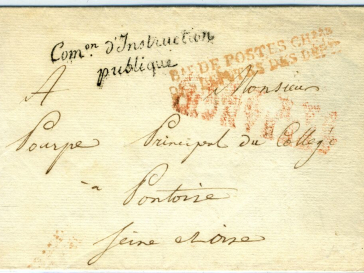 Comon d'Instruction
publique
Bau DE POSTES CHbre
DES DÉPUTÉS DES DÉPts
A Monsieur
Pourpe Principal du College
a Pontoise
Seine et oise